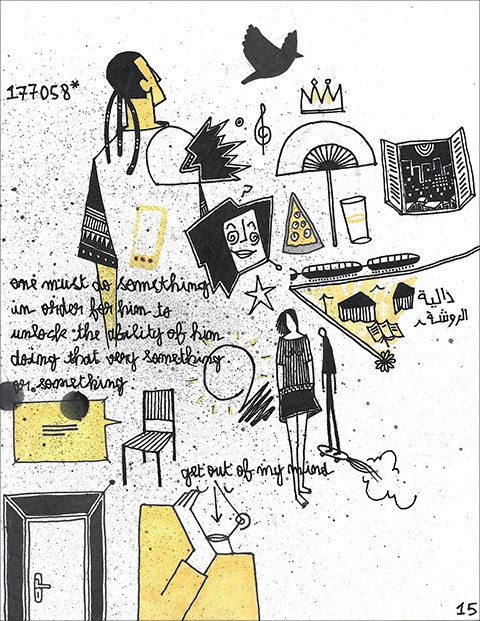 177058*
?
دالية
الروشة
one must do something
in order for him to
unlock the ability of him
doing that very something
or something
get out of my mind
15